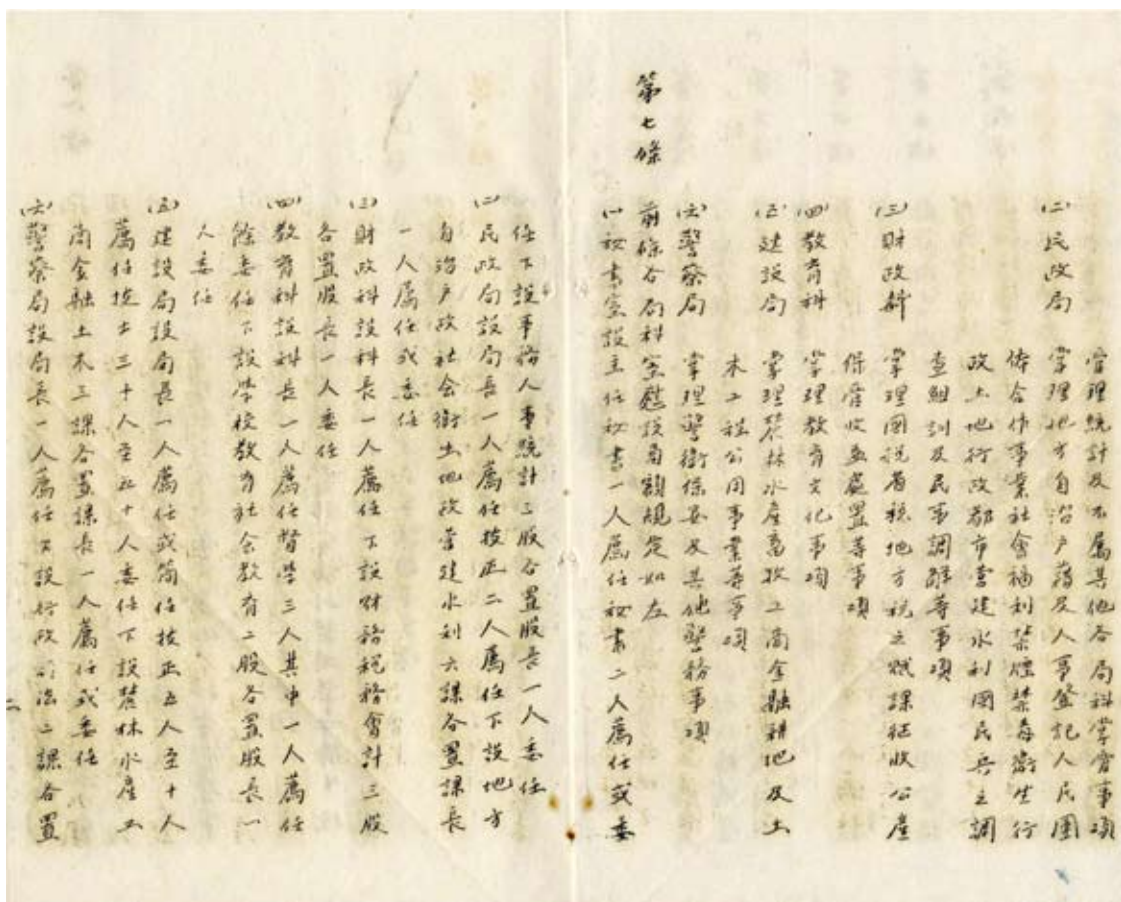 管理統計及不屬其他各局科掌管事項
(二)民政局　掌理地方自治户籍及人事登記人民團
体合作事業社會福利禁煙禁毒衛生行
政土地行政都市营建水利國民兵之調
查組訓及民事調解等事項
(三)財政科　掌理國税省税地方税之賦課征收公產
保管收益處置等事項
(四)教育科　掌理教育文化事項
(五)建設局　掌理農林水產畜牧工商金融耕地及土
木工程公用事業等事項
(六)警察局　掌理警衛保安及其他警務事項
第七條　前條各局科室應設員額規定如左
(一)秘書室設主任秘書一人薦任秘書二人薦任或委
任下設事務人事統計三股各置股長一人委任
(二)民政局設局長一人薦任技正二人薦任下設地方
自治户政社会衛生地政营建水利六課各置課長
一人薦任或委任
(三)財政科設科長一人薦任下設財務税務會計三股
各置股長一人委任
(四)教育科設科長一人薦任督學三人其中一人薦任
餘委任下設學校教育社会教育二股各置股長一
人委任
(五)建設局設局長一人薦任或簡任技正五人至十人
薦任技士三十人至五十人委任下設農林水產工
商金融土木三課各置課長一人薦任或委任
(六)警察局設局長一人薦任下設行政司法二課各置
二